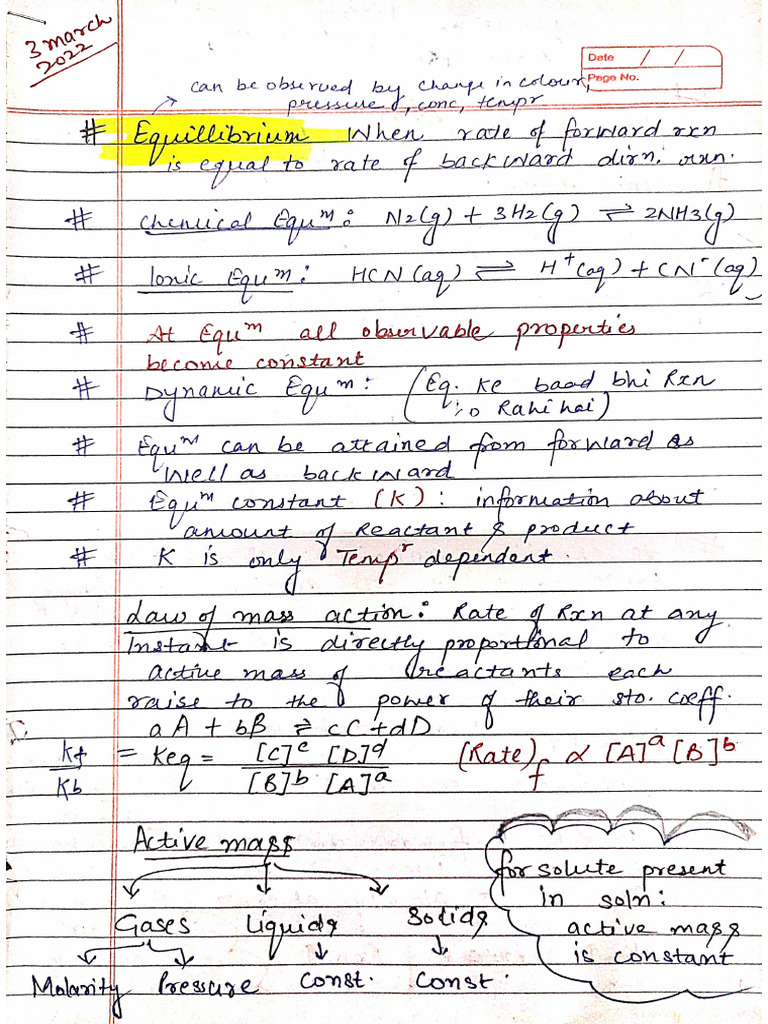 3 march
2022
Date / /
Page No.
can be observed by change in colour,
pressure, conc, tempr
# Equillibrium When rate of forward rxn
is equal to rate of backward dirn. rxn.
# Chemical Equᵐ: N2(g) + 3H2(g) ⇌ 2NH3(g)
# Ionic Equᵐ: HCN(aq) ⇌ H⁺(aq) + CN⁻(aq)
# At Equᵐ all observable properties
become constant
# Dynamic Equᵐ: (Eq. ke baad bhi Rxn
ho Rahi hai)
# Equᵐ can be attained from forward as
well as backward
# Equᵐ constant (K): information about
amount of Reactant & product
# K is only Tempʳ dependent.
Law of mass action: Rate of Rxn at any
Instant is directly proportional to
active mass of reactants each
raise to the power of their sto. coeff.
aA + bB ⇌ cC + dD
Kf/Kb = Keq = [C]ᶜ [D]ᵈ / [B]ᵇ [A]ᵃ (Rate)f ∝ [A]ᵃ [B]ᵇ
Active mass
Gases Liquids Solids
Molarity Pressure Const. Const.
for solute present
in soln:
active mass
is constant